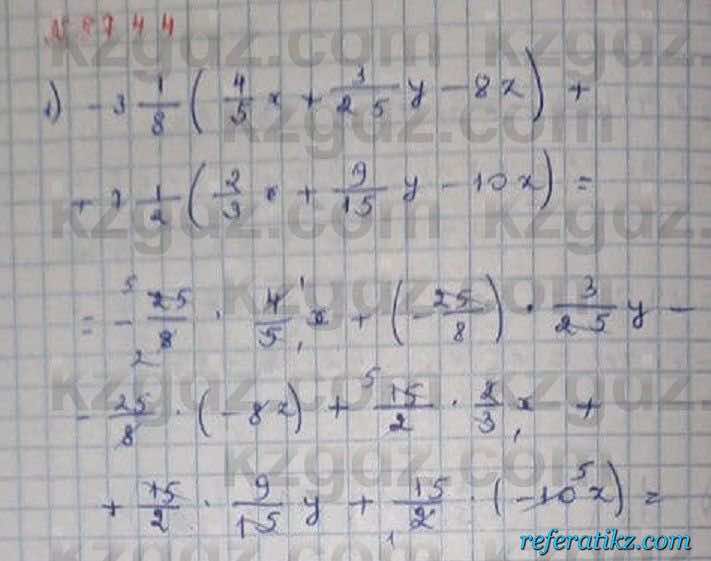 № 744
1) - 3 1/8 ( 4/5 x + 3/25 y - 8z ) +
+ 7 1/2 ( 2/3 x + 9/15 y - 10z ) =
= - 25/8 · 4/5 x + ( - 25/8 ) · 3/25 y -
- 25/8 · ( - 8z ) + 15/2 · 2/3 x +
+ 15/2 · 9/15 y + 15/2 · ( - 10z ) =
kzgdz.com
referatikz.com